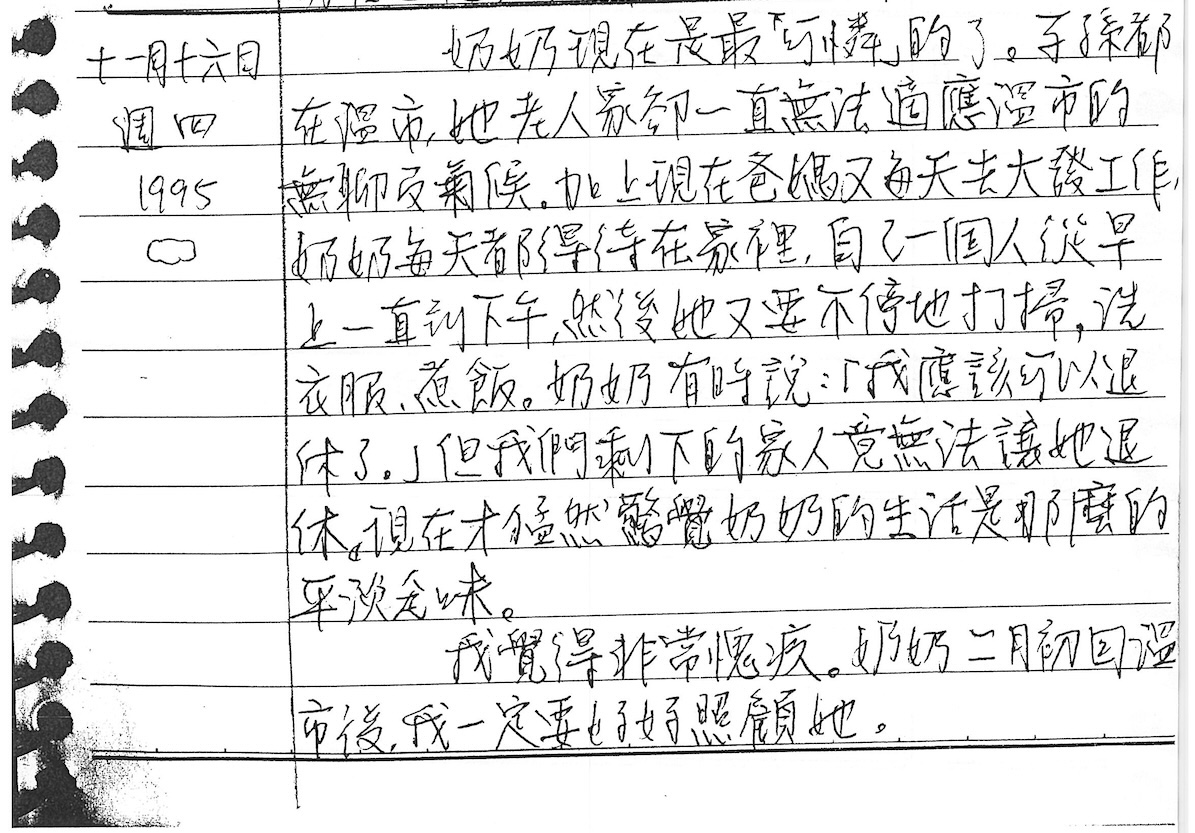 十一月十六日
週四
1995
奶奶現在是最「可憐」的了。子孫都
在溫市,她老人家卻一直無法適應溫市的
無聊及氣候。加上現在爸媽又每天去大發工作,
奶奶每天都得待在家裡,自己一個人從早
上一直到下午,然後她又要不停地打掃,洗
衣服、煮飯。奶奶有時說:「我應該可以退
休了。」但我們剩下的家人竟無法讓她退
休。現在才猛然驚覺奶奶的生活是那麼的
平淡乏味。
我覺得非常愧疚。奶奶二月初回溫
市後,我一定要好好照顧她。